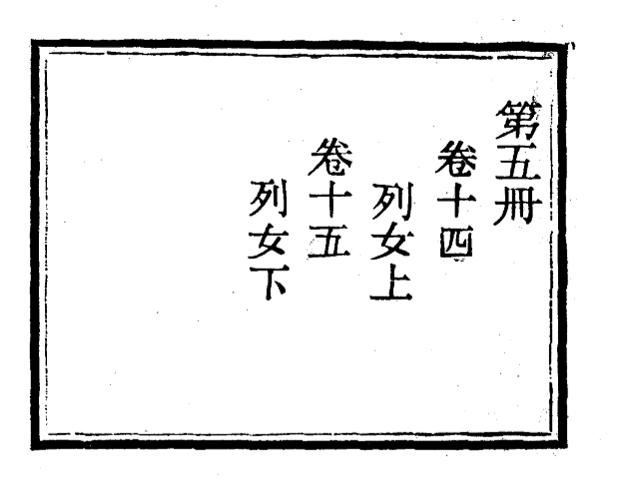 第五冊
卷十四
列女上
卷十五
列女下